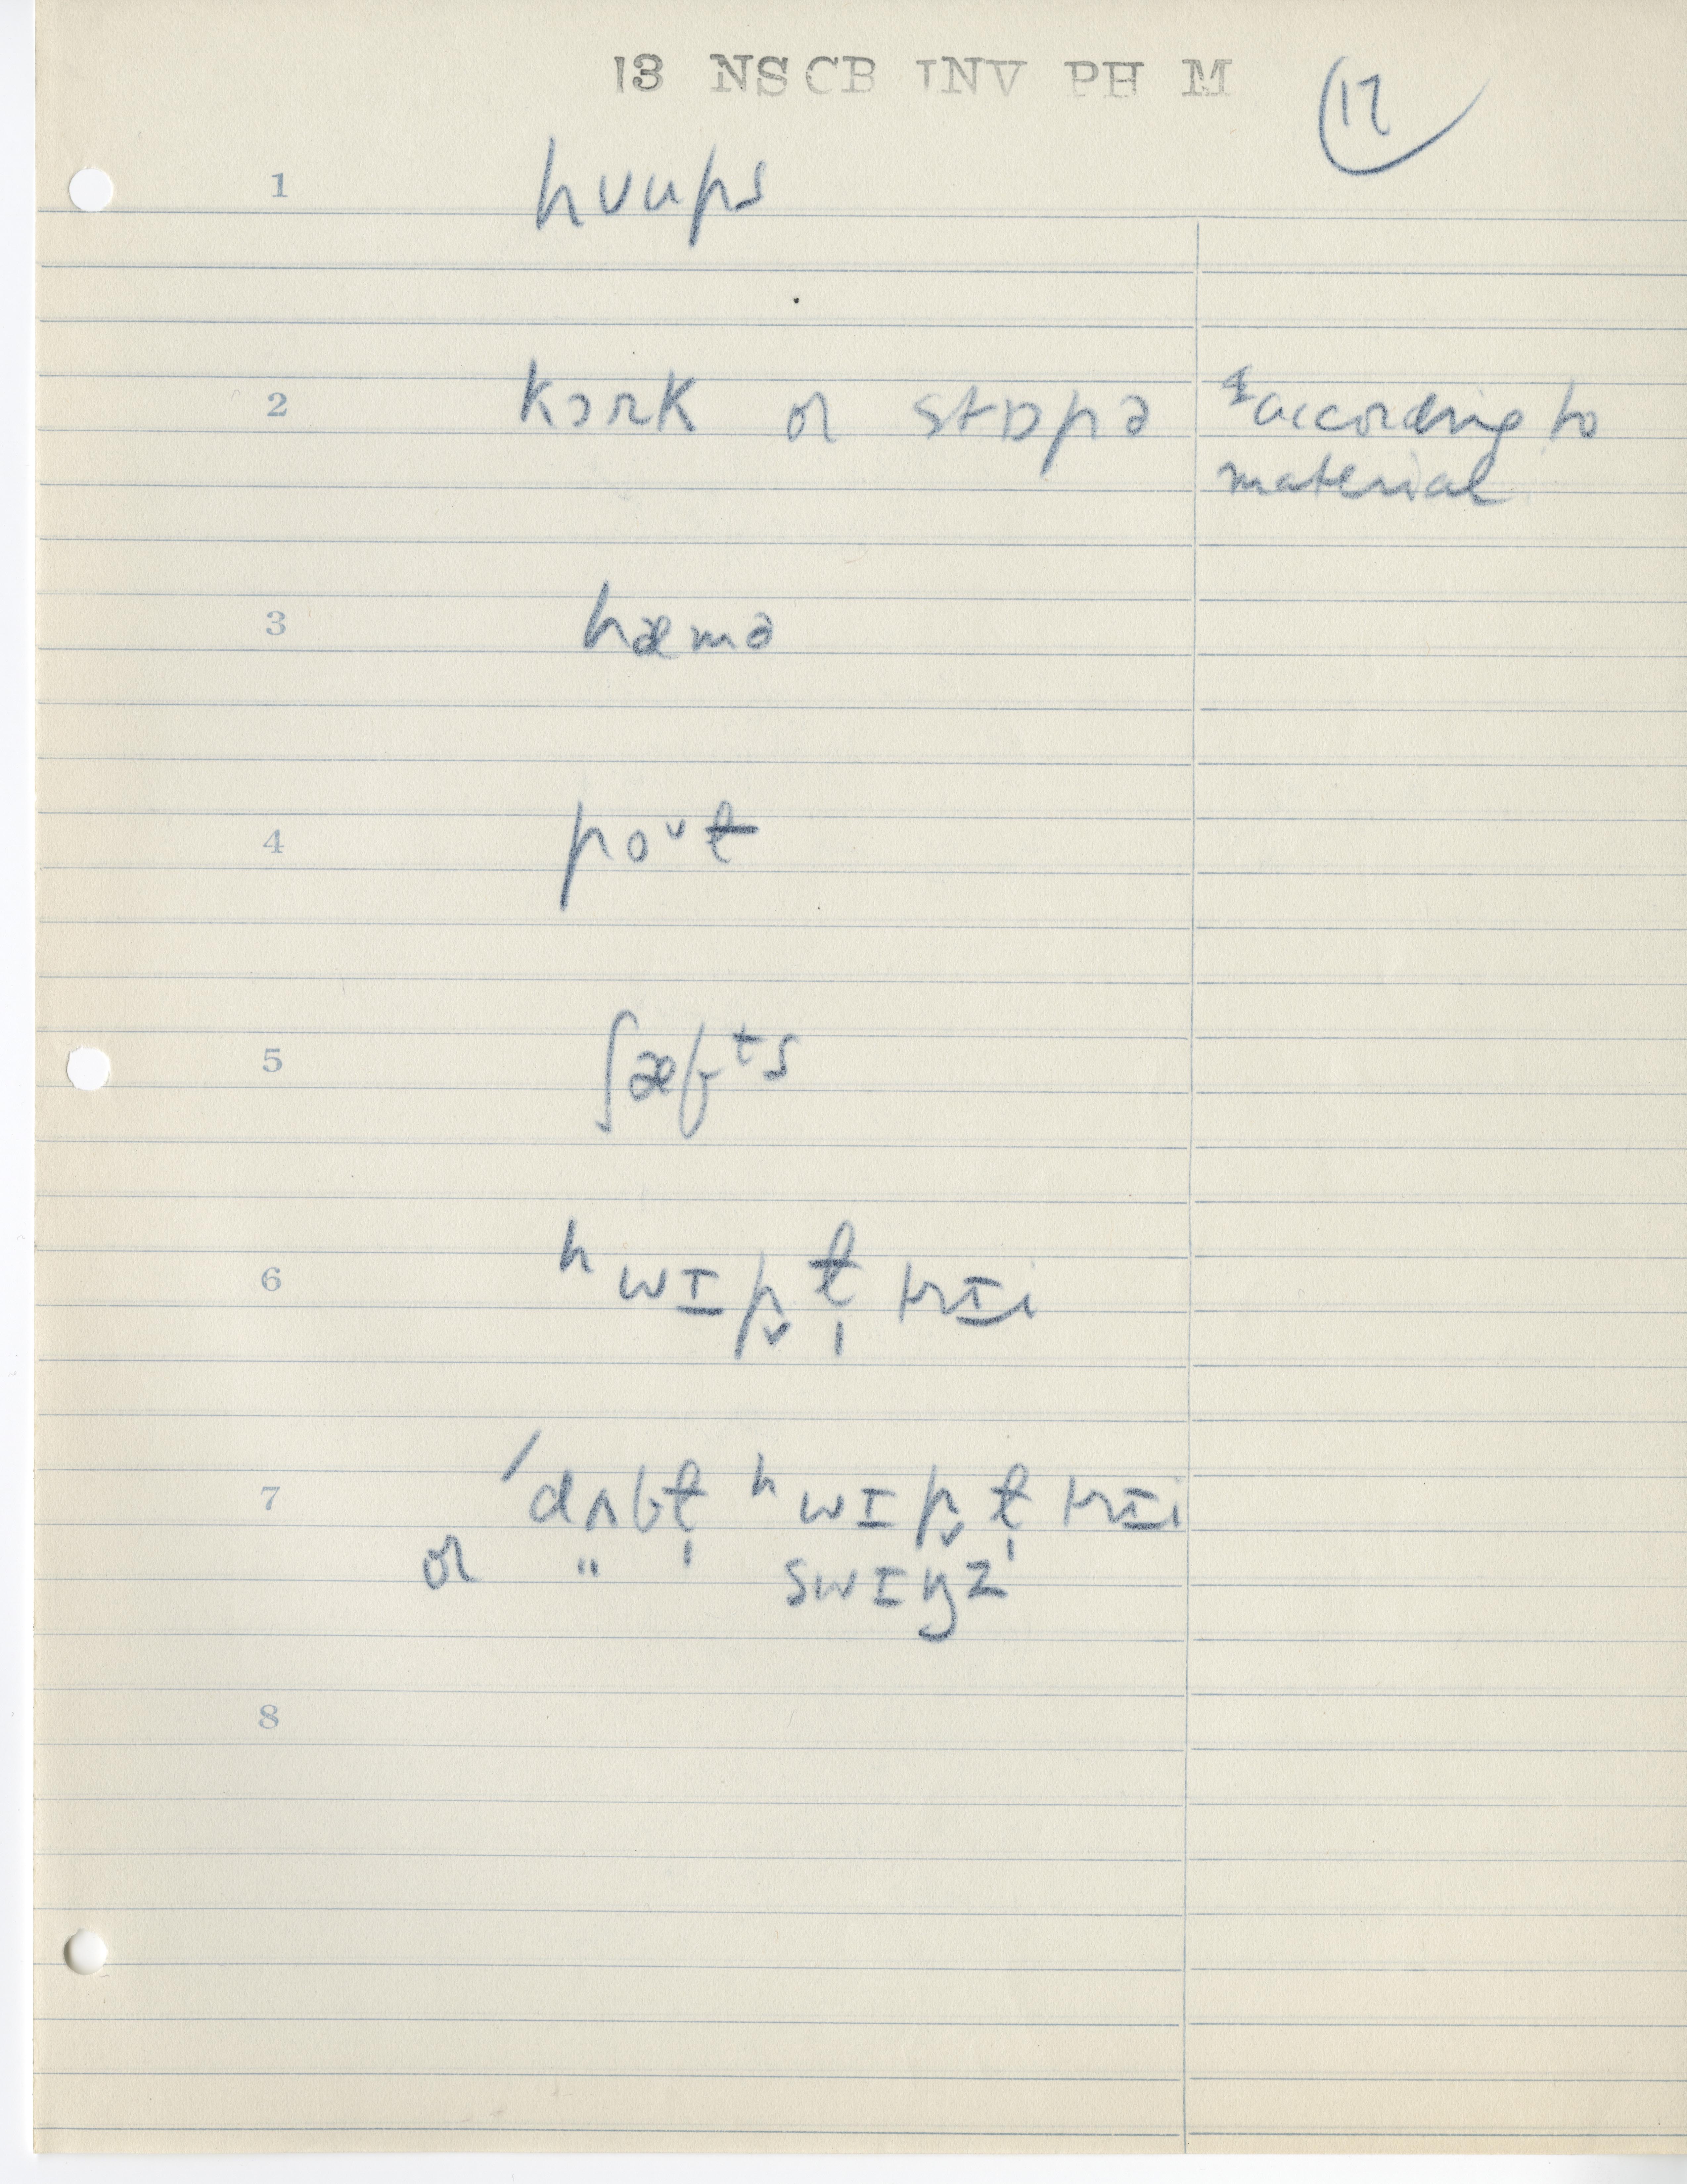 13 NSCB INV PH M
17
1 hʊups
2 kɔrk or stɒpə ꜝaccording to
material
3 hæmə
4 poᶷɫ
5 ʃæfᵗs
6 ʰwɪ̱p̬ɫ̩trɪ̱i
7 ˊdʌbɫ̩ ʰwɪp̬ɫ̩trɪ̱i
or " swɪŋz
8